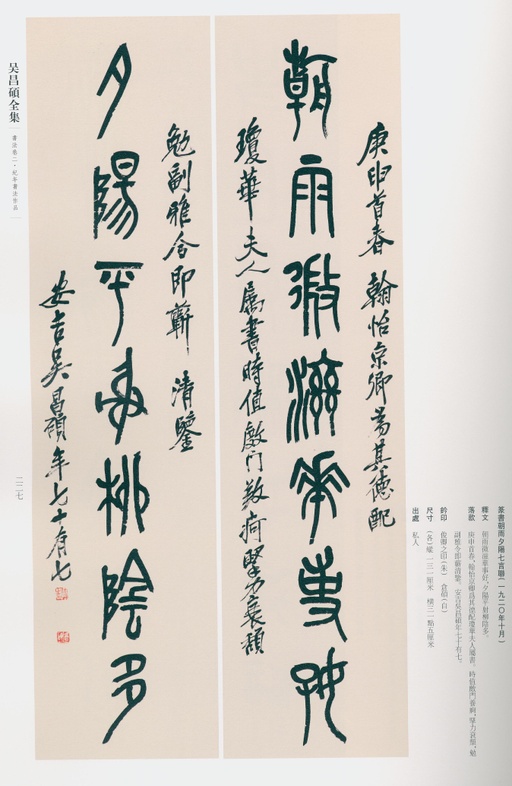 朝雨微滋華事好
庚申首春 翰怡京卿爲其德配
瓊華夫人屬書時值
夕陽平射柳陰多
勉副雅令即蘄 清鑒
安吉吳昌碩年七十有七
篆書朝雨夕陽七言聯(一九二〇年十月)
釋文 朝雨微滋華事好,夕陽平射柳陰多。
落款 庚申首春,翰怡京卿爲其德配瓊華夫人屬書,
副雅令即蘄清鑒。安吉吳昌碩年七十有七。
鈐印 俊卿之印(朱) 倉碩(白)
尺寸 (各)縱一三一厘米 橫三一點五厘米
出處 私人
吴昌碩全集
書法卷二·紀年書法作品
二二七